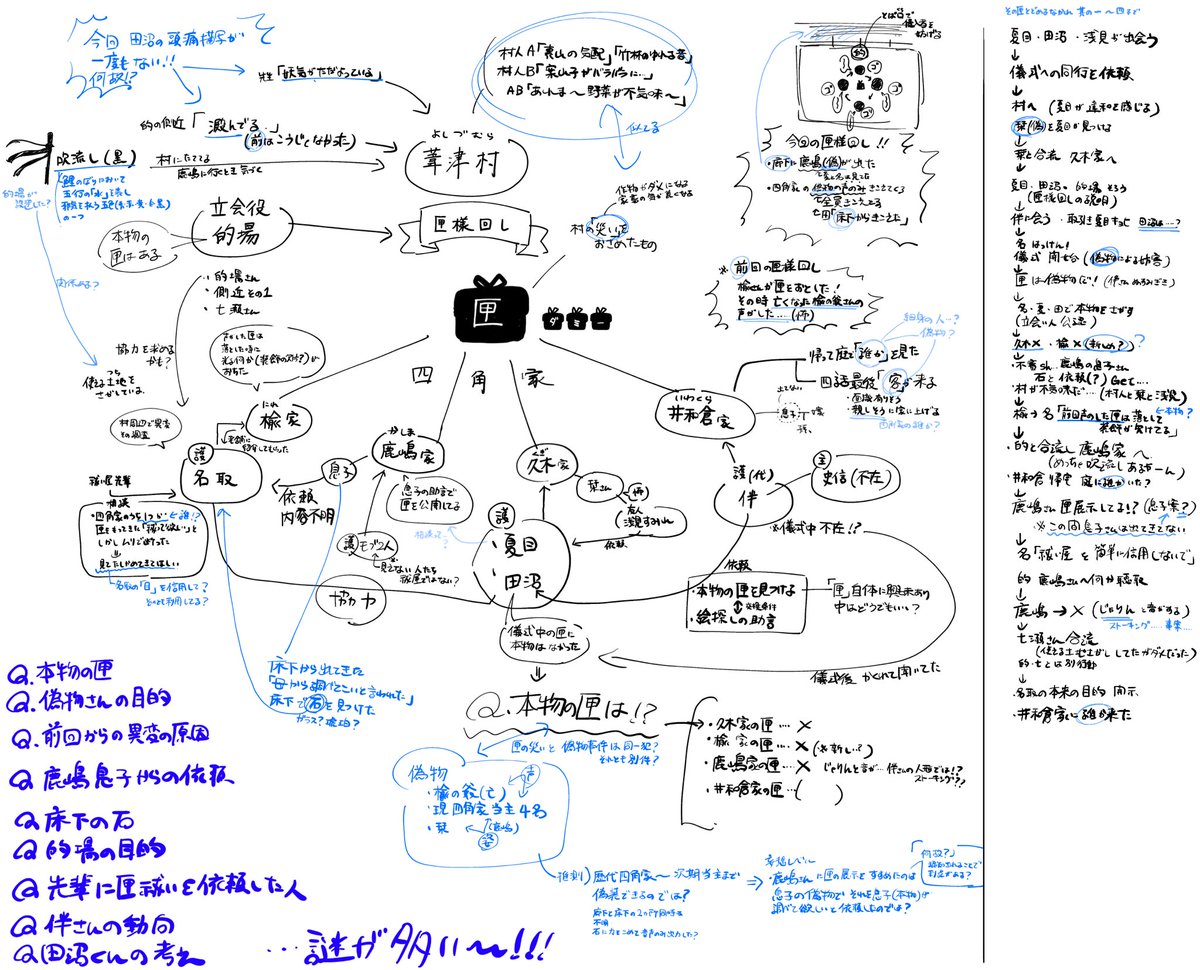 今回 田沼の頭痛描写が
一度もない!!
何故!?
柊「妖気がただよっている」
的の似近「澱んでる…」
(前はこうじゃなかった)
吹流し(黒)
村にたててる
鹿嶋に行くとき気づく
鯉のぼりにおいて
五行の「水」を表し
の一つ
的場が
設置した?
村人A「裏山の気配」「竹林のゆれる音」
村人B「案山子がバラバラに…」
AB「あんま〜野菜が不気味〜」
似てる
よしづむら
葦津村
立会役
的場
本物の
匣はある
・的場さん
・側近その1
・七瀬さん
匣様回し
作物がダメになる
村の「災い」を
おさめたもの
匣
ダミー
四角家
今回の匣様回し!!
・床下に鹿嶋(偽)が出た
・四角家の偽物の声のみきこえてくる
七「全員きこえてる」
七・田「床下からきこえた」
※前回の匣様回し
楡さんが匣をおとした!
その時亡くなった楡の爺さんの
声がした…(怖)
協力を求める
かも?
つち
使える土地を
さがしている
村周辺で異変
その調査
にれ
楡家
護
名取
祓い屋先輩
相談
・四角家のうち1つが
匣をもってきた「祓って欲しい」と
しかしムリで断った
見てたしかめてきてほしい
←誰!?
名取の「目」を信用して?
それとも利用してる?
かしま
鹿嶋家
息子
依頼
内容不明
息子の助言で
匣を公開してる
護 モブ2人
見えない人たち
祓屋ではない?
協力
くぎ
久木家
栞さん
友人
依頼
護
・夏目
・田沼
儀式中の匣に
本物はなかった
いわくら
井和倉家
帰って庭で「誰か」を見た
四話最後「客」が来る
・面識有りそう
・親しそうに家に上げる
四角家の誰か?
偽物?
護(代)
伴
主
史信(不在)
※儀式中 不在!?
依頼
・本物の匣を見つける
・絵探しの助言
「匣」自体に興味あり
中はどうでもいい?
儀式後 かくれて聞いてた
床下から出てきた
床下で石を見つけた
ガラス?琥珀?
Q.本物の匣は!?
・久木家の匣…×
・楡家の匣…×(※新しい?)
・鹿嶋家の匣…× じゃりんと音が…伴さんの人形では!?
ストーキング??
・井和倉家の匣…( )
匣の災いと偽物事件は同一犯?
それとも別件?
偽物
・楡の爺(亡)
・現四角家当主4名
・栞
声
(鹿嶋)
姿
推測)歴代四角家〜次期当主まで
偽装できるのでは?
廊下と床下の2ヶ所同時は
不明
石に力をこめて音声のみ出力した?
・鹿嶋さんに匣の展示をすすめたのは
息子の偽物で それを息子(本物)が
調べて欲しいと依頼したのでは?
「何故?」
Q.本物の匣
Q.偽物さんの目的
Q.前回からの異変の原因
Q 鹿嶋息子からの依頼
Q 床下の石
Q 的場の目的
Q 先輩に匣祓いを依頼した人
Q 伴さんの動向
Q 田沼くんの考え
…謎が多い〜!!!
その匣とどめるなかれ 其の一〜四まで
夏目・田沼・浅見が出会う
↓
儀式への同行を依頼
↓
村へ(夏目が違和を感じる)
↓
栞(偽)を夏目が見つける
↓
栞と合流 久木家へ
↓
夏目・田沼。的場そろう
(匣様回しの説明)
↓
伴に会う・取引き夏目すっと 田沼は…?
↓
名 はっけん!
儀式 開始(偽物による妨害)
↓
匣は偽物だ!
↓
名・夏・田で本物をさがす
(立会い人公認)
↓
久木× ・楡×(新しめ?)?
↓
・不審さん、鹿嶋の息子さん
石と依頼(?)Get…
・村が不気味だ…(村人と栞と浅見)
↓
楡→名「前回声のした匣は落として
装飾が欠けてる」
←本物?
↓
・的と合流し鹿嶋家へ
(めっちゃ吹流しあるぅーん)
・井和倉 帰宅 庭に誰かいた?
↓
鹿嶋さん 匣展示してる!?(息子案?)
※この間息子さんは出てきてない
↓
名「祓い屋を簡単に信用しないで」
的 鹿嶋さんへ何か聴取
↓
鹿嶋→×(じゃりんと音がする)
ストーキング……事案…
↓
七瀬さん合流
(使える土地さがししてたがダメだった)
的・七とは別行動
↓
・名取の本来の目的 開示
↓
・井和倉家に誰か来た